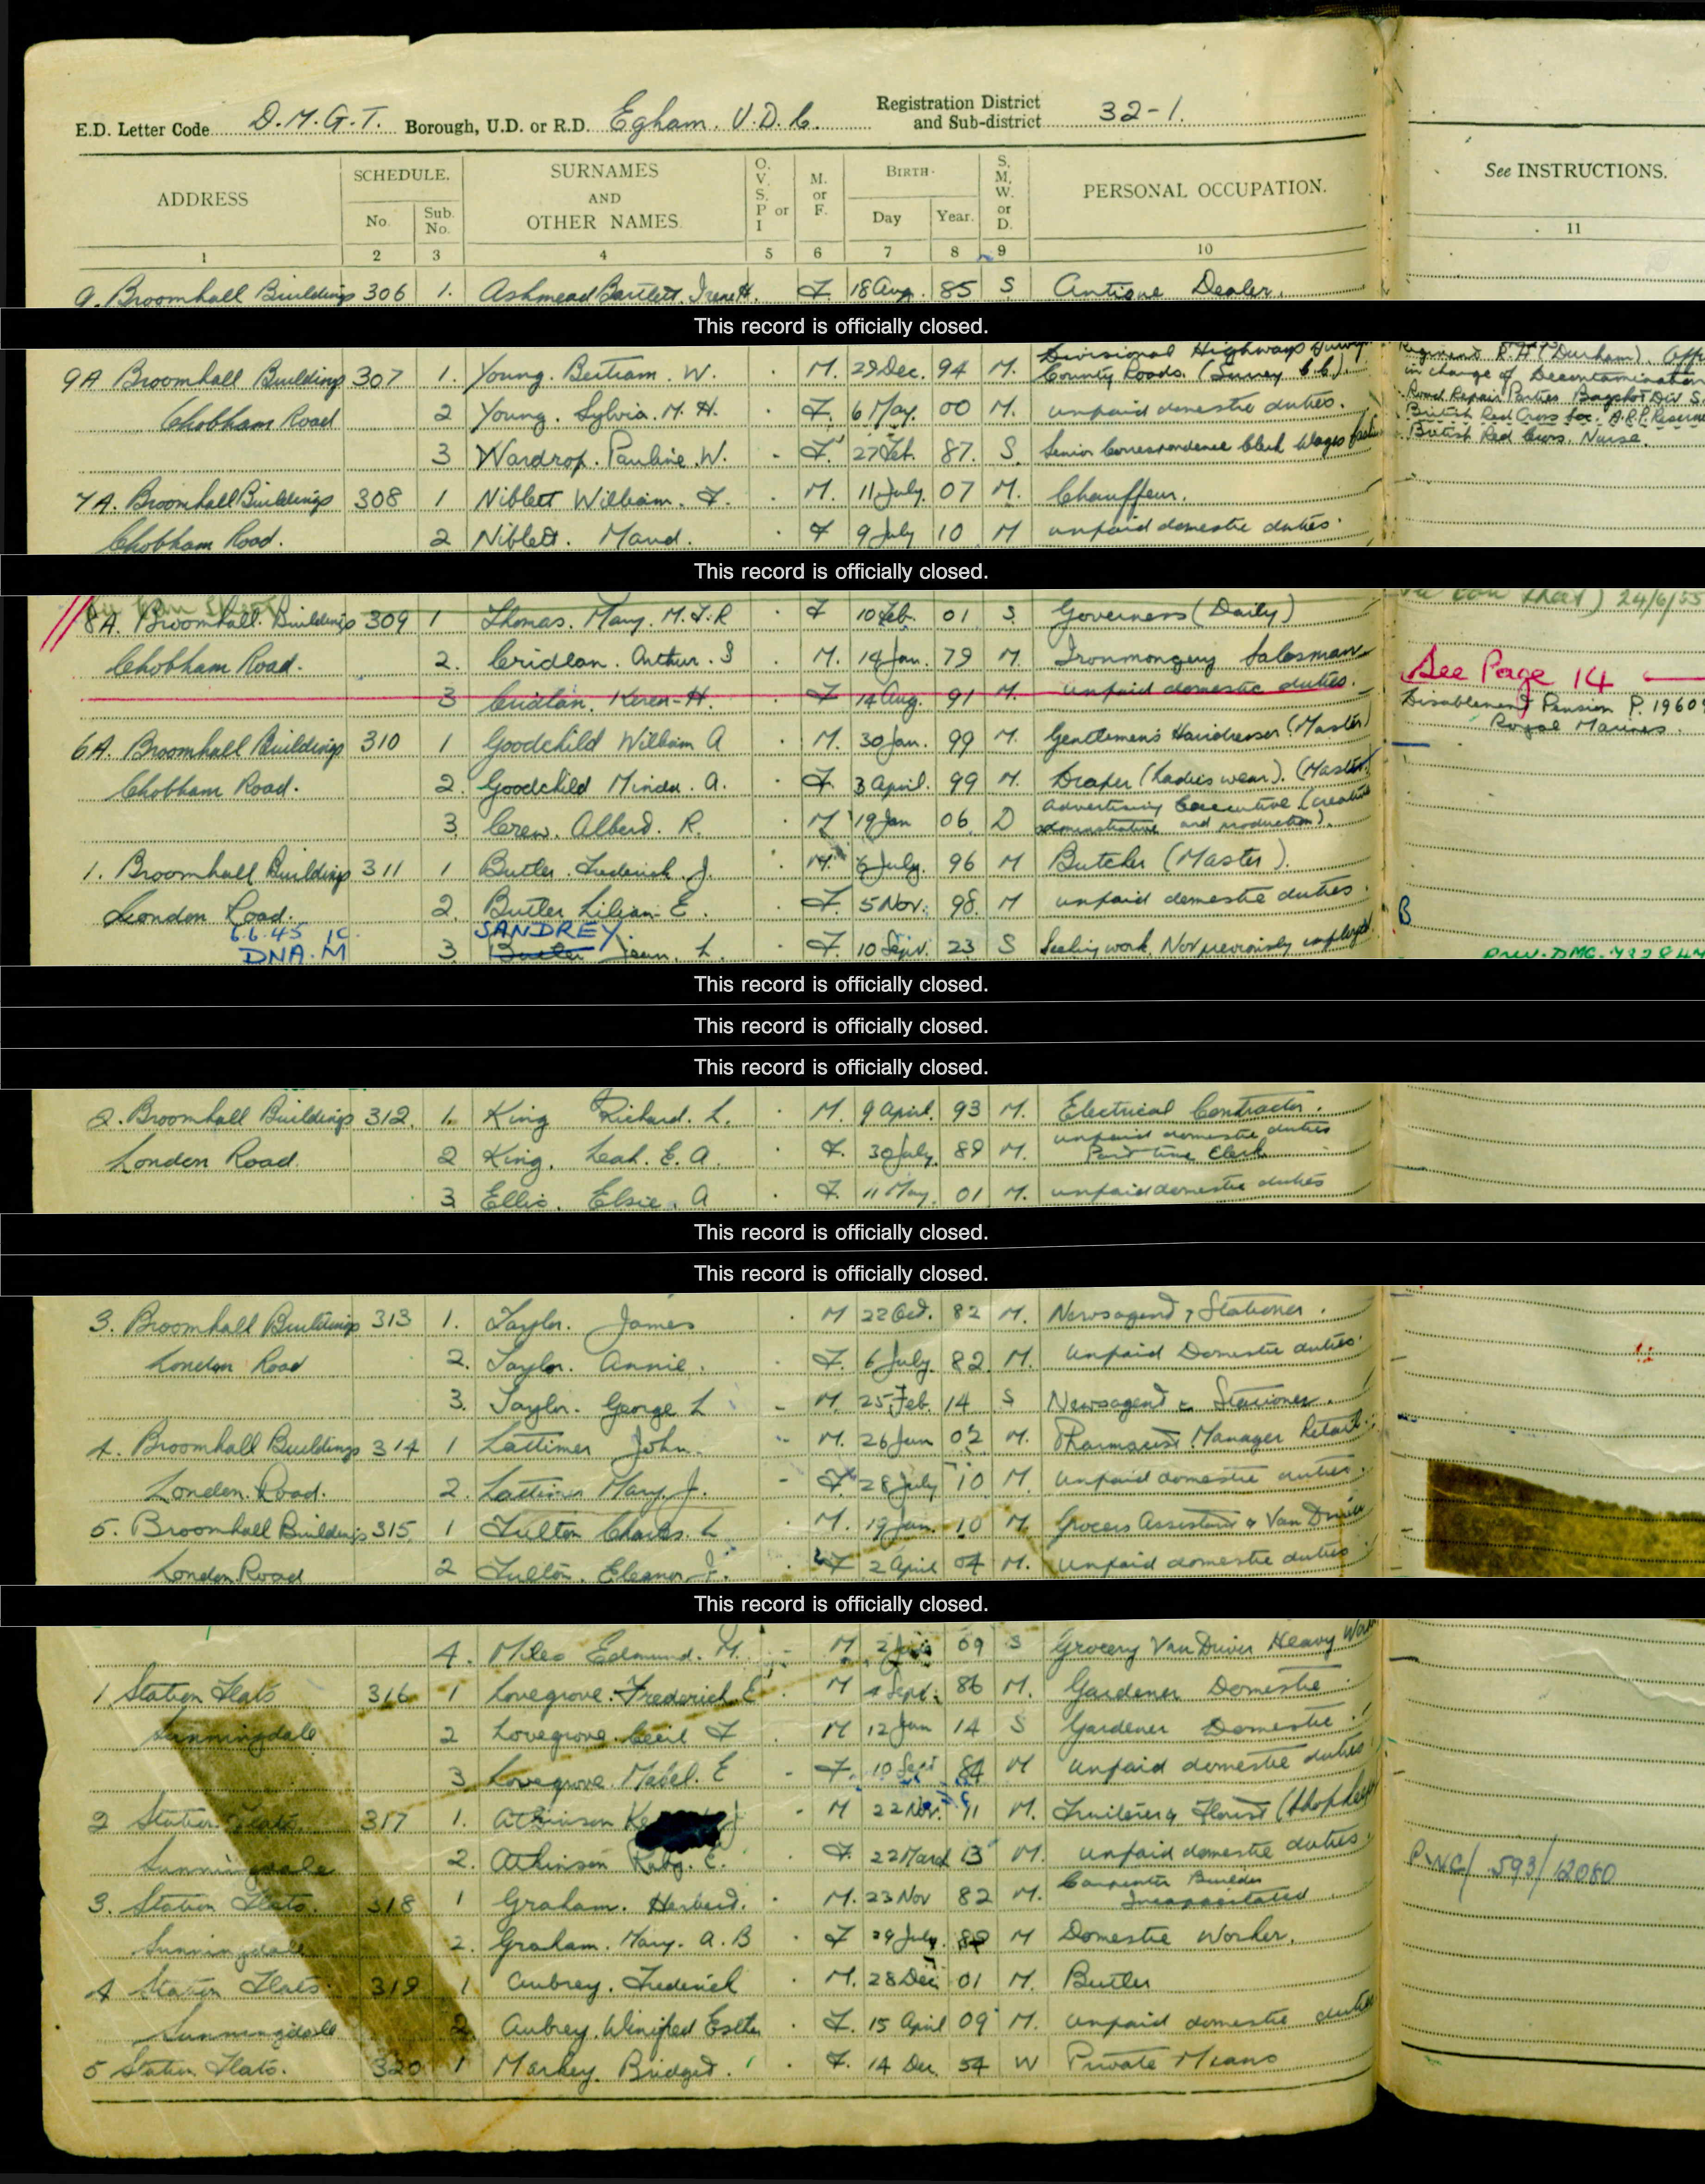 E.D. Letter Code D.M.G.T. Borough, U.D. or R.D. Egham. U.D.C. Registration District and Sub-district 32-1.
ADDRESS SCHEDULE. SURNAMES AND OTHER NAMES O. V. S. P or I M. or F. BIRTH S. M. W. or D. PERSONAL OCCUPATION. See INSTRUCTIONS.
No. Sub. No. Day Year.
1 2 3 4 5 6 7 8 9 10 11
9. Broomhall Buildings 306 1. Ashmead Bartlett. Irene H. F. 18 Aug. 85 S Antique Dealer.
This record is officially closed.
9A Broomhall Buildings 307 1. Young. Bertram. W. M. 29 Dec. 94 M. Divisional Highways County Roads. (Surrey C.C.).
Regiment R.A. (Durham).
in charge of Decontamination
Road Repair Parties Bagshot Div
Chobham Road 2 Young. Sylvia. M. H. F. 6 May. 00 M. unpaid domestic duties. British Red Cross Soc. A.R.P. Reserve
3 Wardrop. Pauline. W. F. 27 Feb. 87. S. Senior Correspondence Clerk Wages British Red Cross. Nurse.
7A. Broomhall Buildings 308 1 Niblett William. F. M. 11 July. 07 M. Chauffeur.
Chobham Road. 2 Niblett. Maud. F 9 July 10 M unpaid domestic duties.
This record is officially closed.
24/6/55
8A. Broomhall Buildings 309 1 Thomas. Mary. M. F. R F 10 Feb. 01 S. Governess (Daily)
Chobham Road. 2. Cridlan. Arthur. S M. 14 Jan. 79 M. Ironmongery Salesman See Page 14
3 Cridlan. Keren-H. F 14 Aug. 91 M. unpaid domestic duties. Disablement Pension P. 1960
Royal Marines.
6A. Broomhall Buildings 310 1 Goodchild William A M. 30 Jan. 99 M. Gentlemen's Hairdresser (Master)
Chobham Road. 2. Goodchild Minda. A. F. 3 April. 99 M. Draper (Ladies wear). (Master)
3. Crew. Albert. R. M 19 Jan 06 D Advertising Executive (creative administrative and production).
1. Broomhall Buildings 311 1 Butler. Frederick. J. M. 6 July. 96 M Butcher (Master).
London Road. 2. Butler Lilian E. F. 5 Nov. 98. M unpaid domestic duties. B
6.6.45 SANDREY
DNA.M 3 Butler Jean. L. F. 10 Sept. 23 S Seeking work. Not previously employed
This record is officially closed.
This record is officially closed.
This record is officially closed.
2. Broomhall Buildings 312. 1. King Richard. L. M. 9 April. 93 M. Electrical Contractor.
London Road. 2 King. Leah. E. A. F. 30 July. 89 M. unpaid domestic duties Part time Clerk
3 Ellis. Elsie. A F. 11 May. 01 M. unpaid domestic duties
This record is officially closed.
This record is officially closed.
3. Broomhall Buildings 313 1. Taylor. James M 22 Oct. 82 M. Newsagent & Stationer.
London Road 2. Taylor. Annie. F. 6 July. 82. M. Unpaid Domestic duties.
3. Taylor. George L M. 25 Feb. 14 S Newsagent & Stationer.
4. Broomhall Buildings 314 1 Lattimer John. M. 26 Jun 02 M. Pharmacist Manager Retail.
London Road. 2. Lattimer Mary. J. F. 28 July 10 M unpaid domestic duties.
5. Broomhall Buildings 315 1 Fulton Charles. L M. 19 Jan. 10 M. Grocers Assistant & Van Driver
London Road 2 Fulton. Eleanor J. F 2 April 04 M. unpaid domestic duties
This record is officially closed.
4. Miles Edmund. M. M 2 09 S Grocery Van Driver Heavy Work
1. Station Flats 316 1 Lovegrove. Frederick E M 4 Sept. 86 M. Gardener Domestic
Sunningdale 2 Lovegrove. Cecil F M 12 Jan 14 S Gardener Domestic
3 Lovegrove. Mabel. E F. 10 Sept 84 M unpaid domestic duties
2 Station Flats 317 1. Atkinson M 22 Nov. 11 M. Fruiterer & Florist (Shopkeeper
Sunningdale 2. Atkinson Ruby. E. F. 22 March 13 M. unpaid domestic duties. PWC/ 593/ 12080
3. Station Flats. 318 1 Graham. Herbert. M. 23 Nov 82 M. Carpenter Builder Incapacitated
Sunningdale 2. Graham. Mary. A. B F 29 July. M Domestic Worker.
4 Station Flats 319 1 Aubrey. Frederick M. 28 Dec 01 M. Butler
Sunningdale 2 Aubrey. Winifred Esther F. 15 April 09 M. unpaid domestic duties
5 Station Flats. 320 1 Markey. Bridget. F. 14 Dec. 54 W Private Means